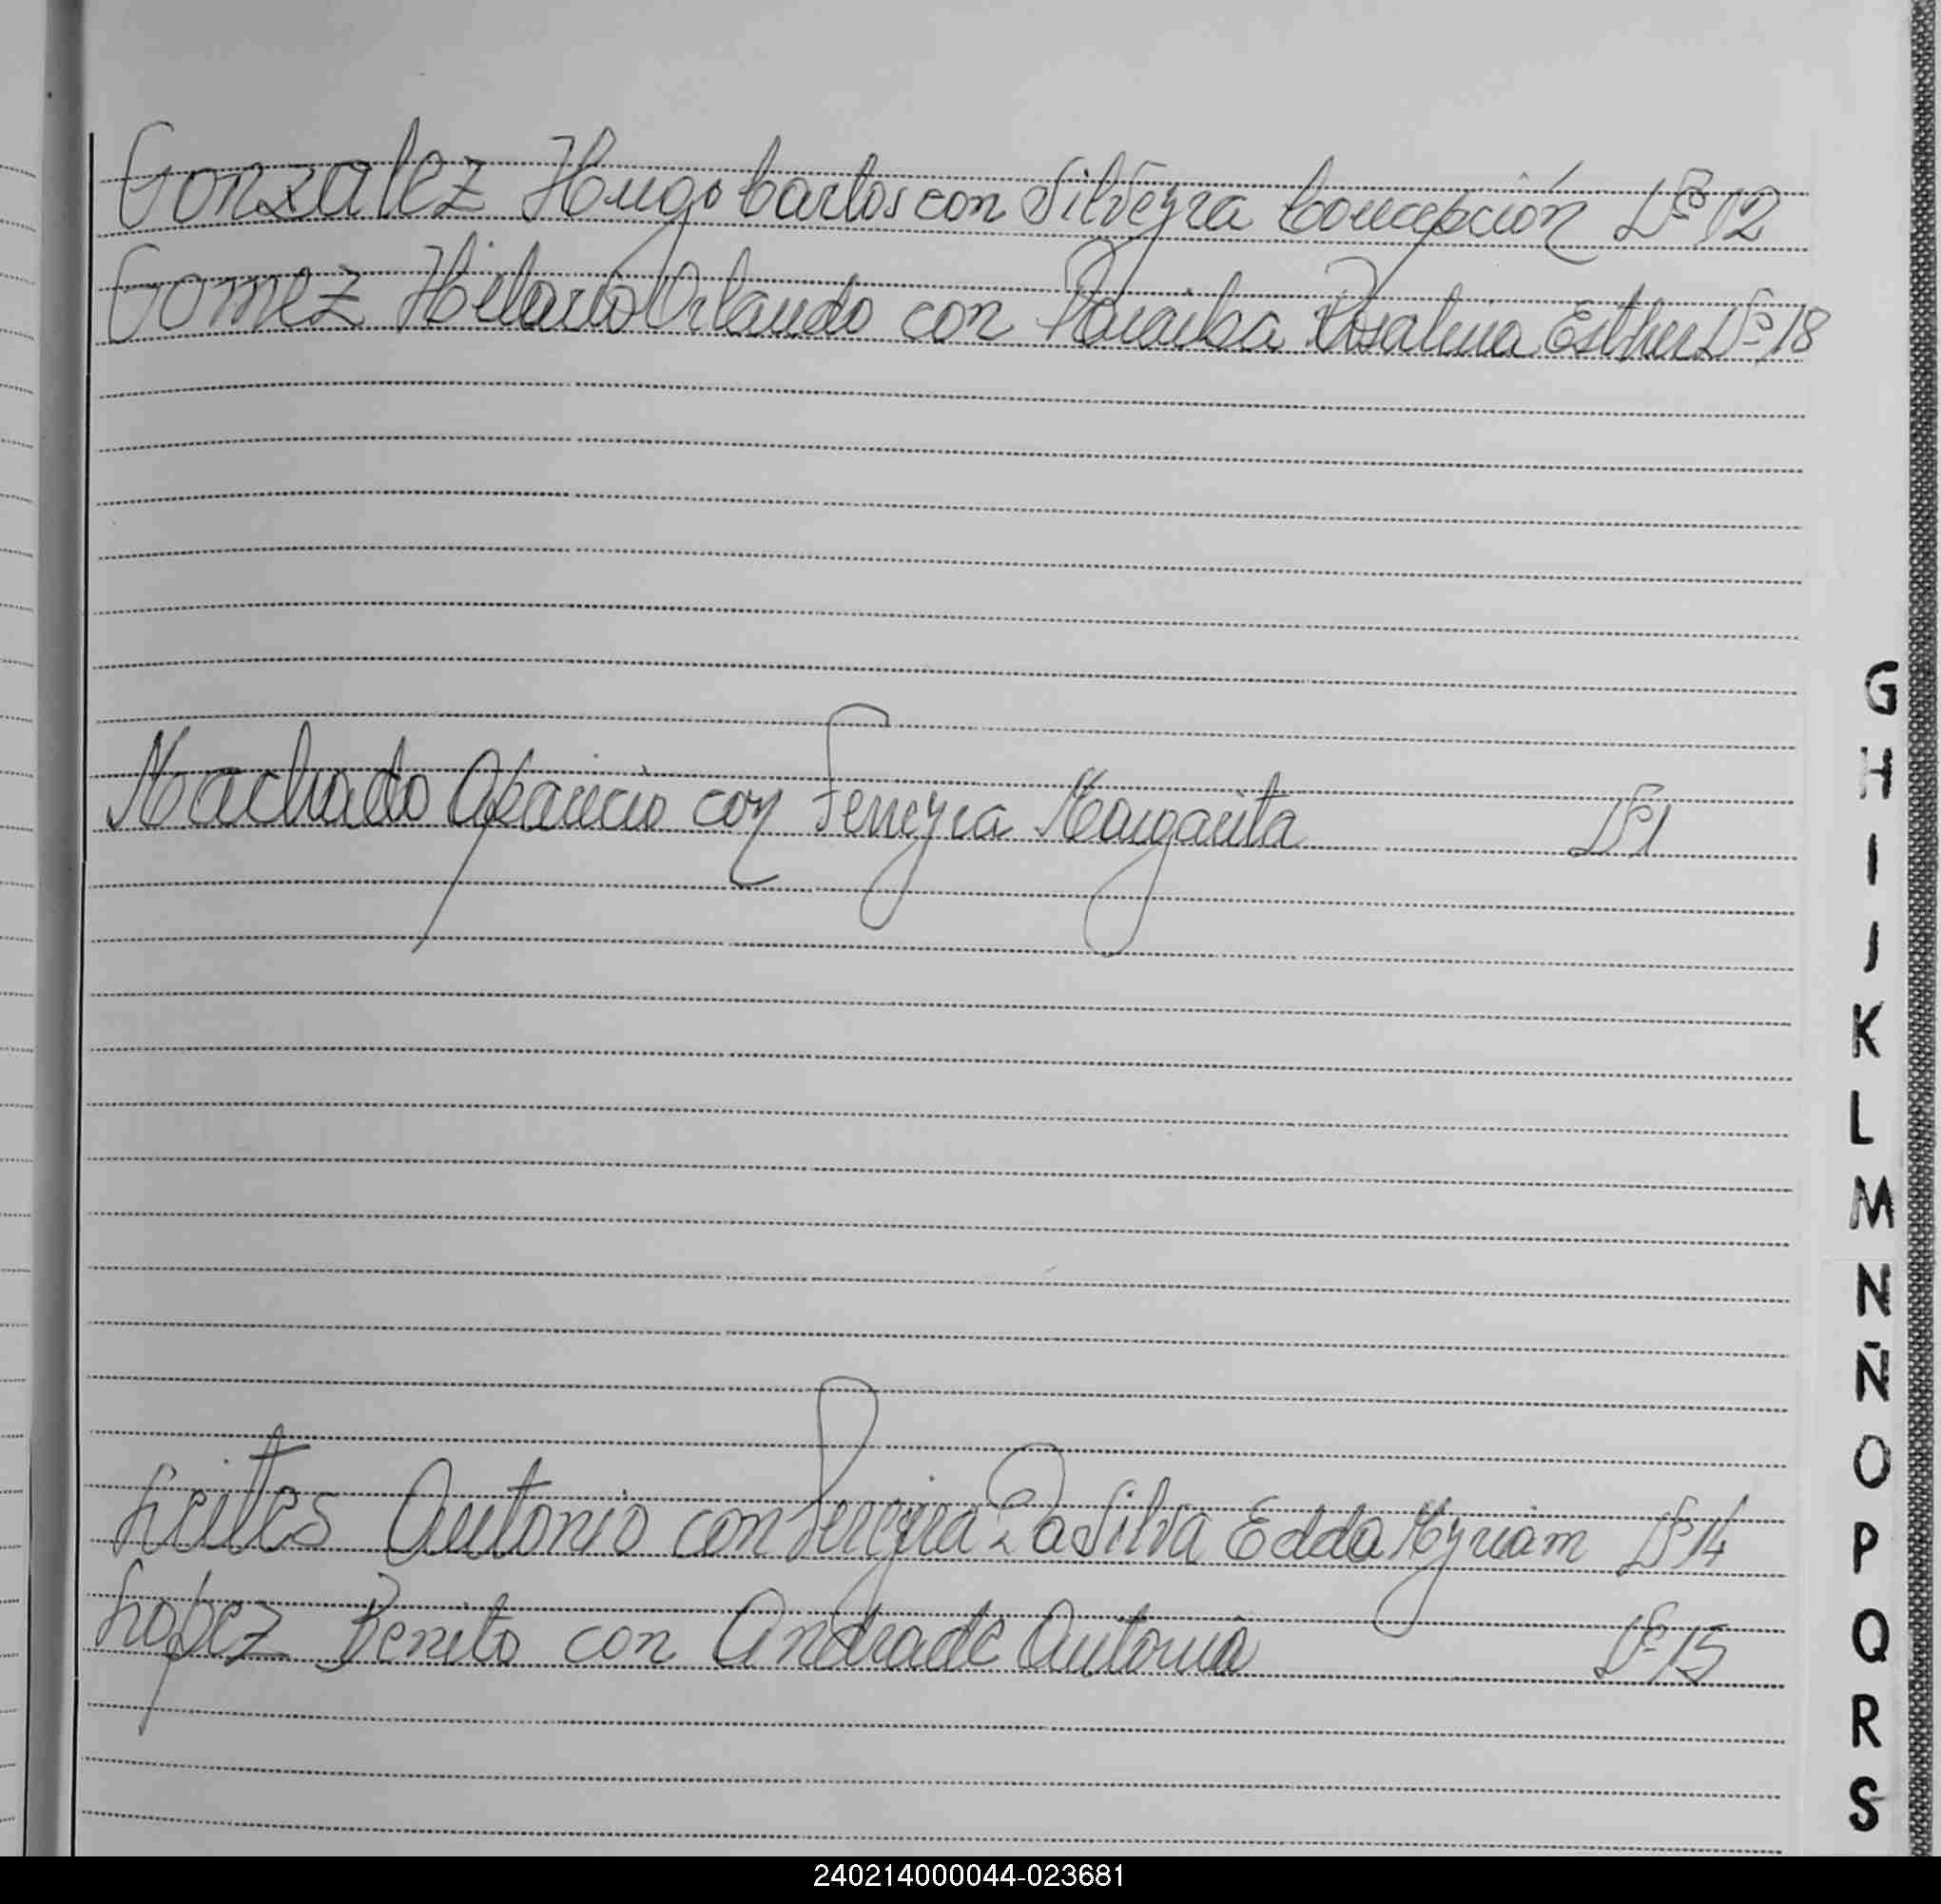 Gonzalez Hugo Carlos con Silveyra Concepción Nº 12
Gomez Hilario Orlando con Paraiba Rosalina Esther Nº 18
Machado Aparicio con Ferreyra Margarita Nº 1
Leites Antonio con Ferreyra Da Silva Edda Myriam Nº 14
Lopez Benito con Andrade Antonia Nº 15
G
H
I
J
K
L
M
N
Ñ
O
P
Q
R
S
240214000044-023681